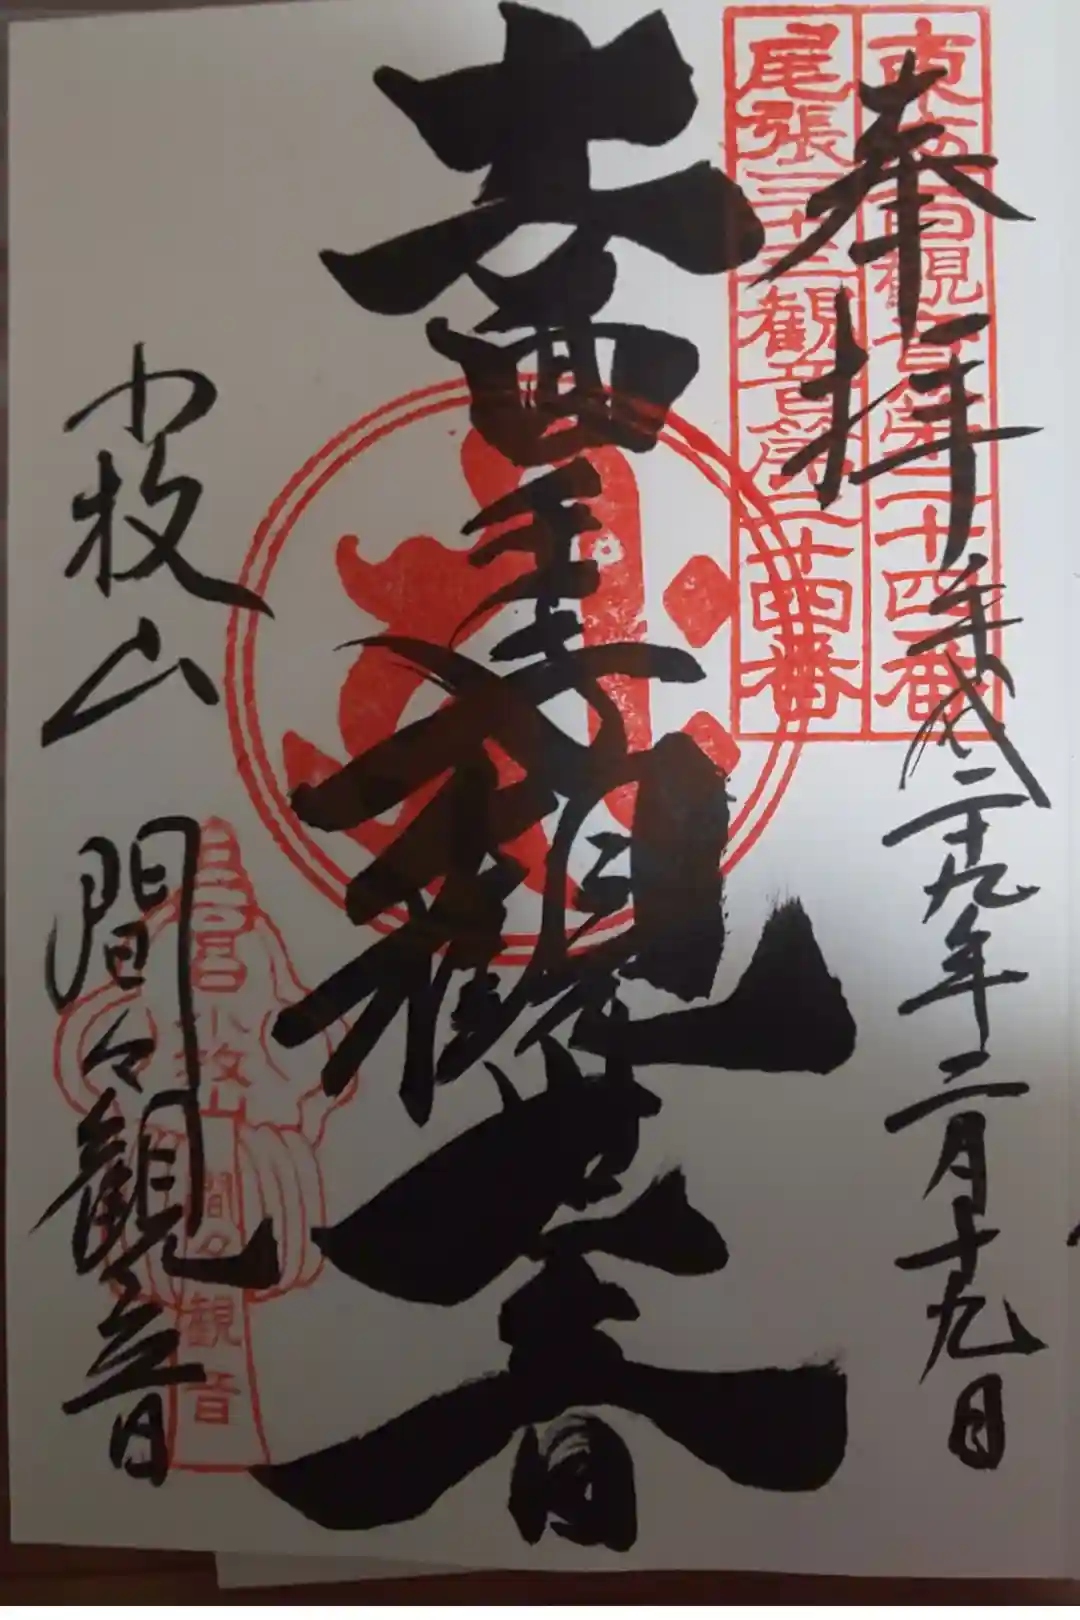 東海百観音第二十四番
尾張三十三観音第二十四番
奉拝
平成二十九年二月十九日
十一面千手観世音
小牧山
間々観音
小牧山
間々観音